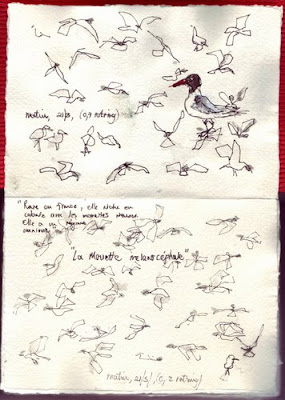 matin, 21/3, (0,1 rotring)
"Rare en france, elle niche en
colonie avec les mouettes rieuses.
Elle a un régime
omnivore"
"La Mouette mélanocéphale"
matin, 21/3/ (0,2 rotring)